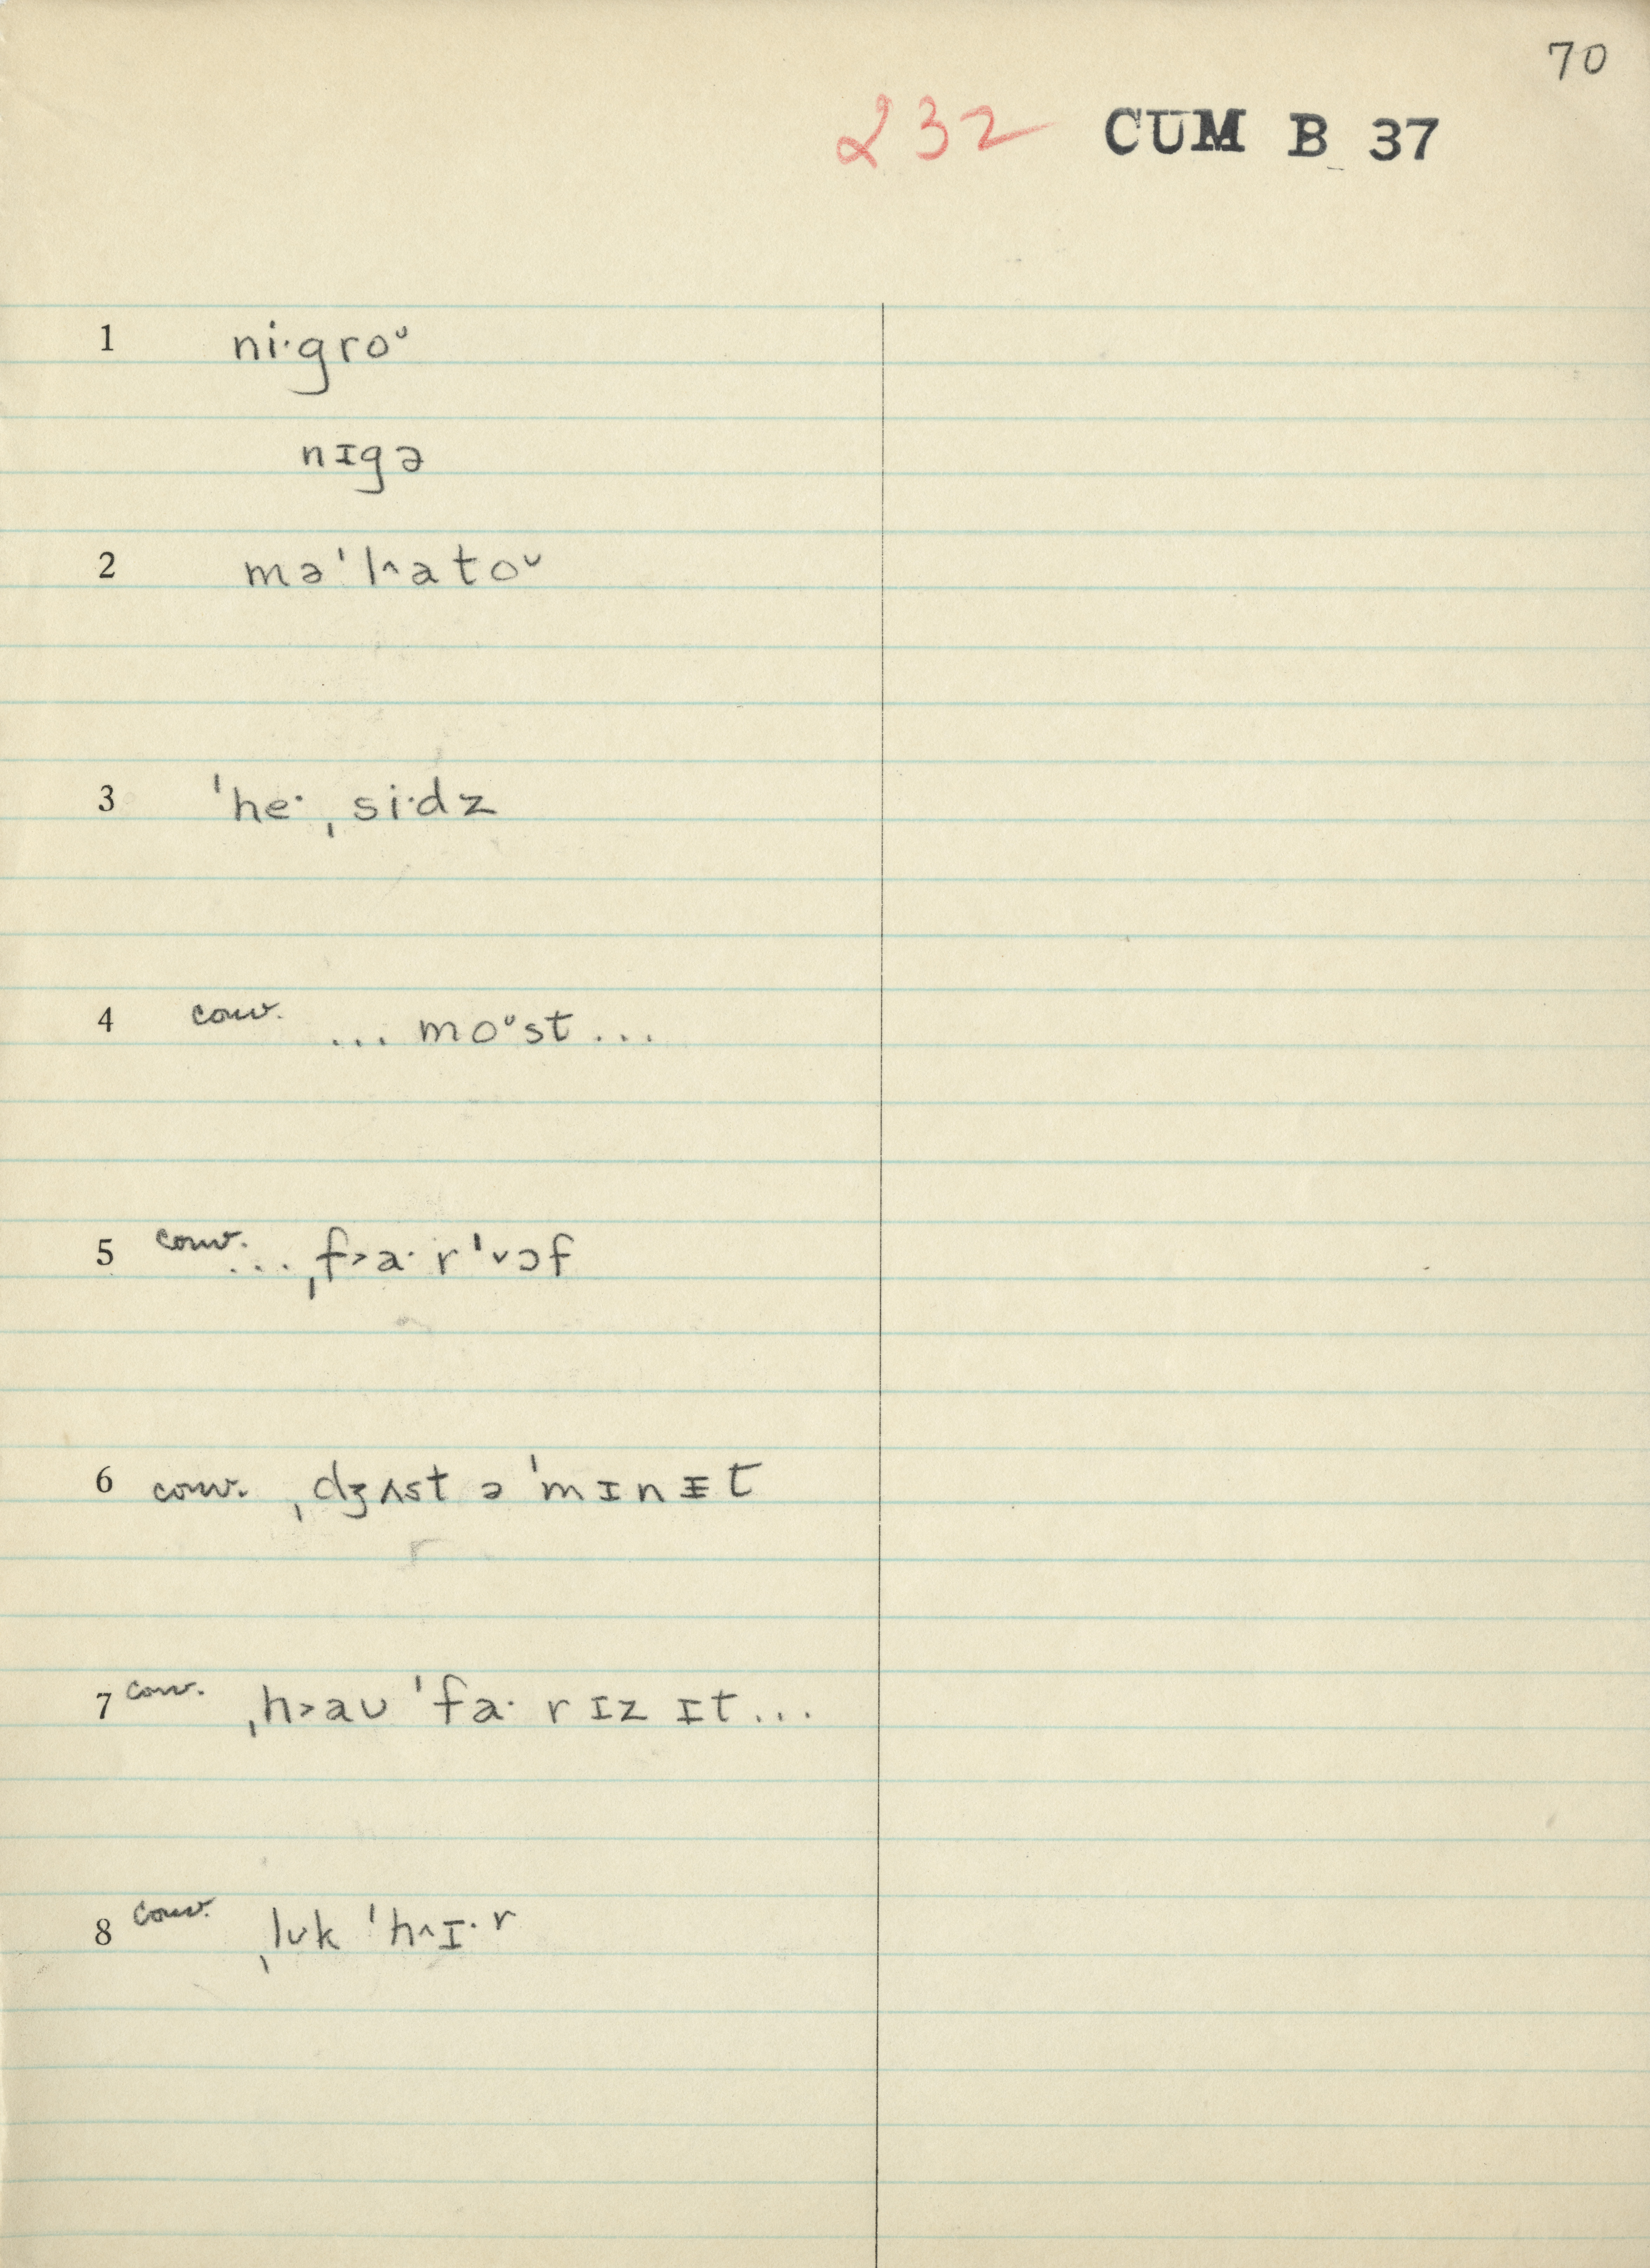 70
232 CUM B 37
1 ni·groᵁ
nɪgə
2 məˈl^atoᵁ
3 ˈhe·ˌsi·dz
4 conv. ... moᵁst ...
5 conv. ... ˌf>a·r ˈ˅ɔf
6 conv. ˌdʒʌst ə ˈmɪnᵻt
7 conv. ˌh>aʊ ˈfa·r ɪz ɪt ...
8 conv. ˌlʊk ˈh^ɪ·r